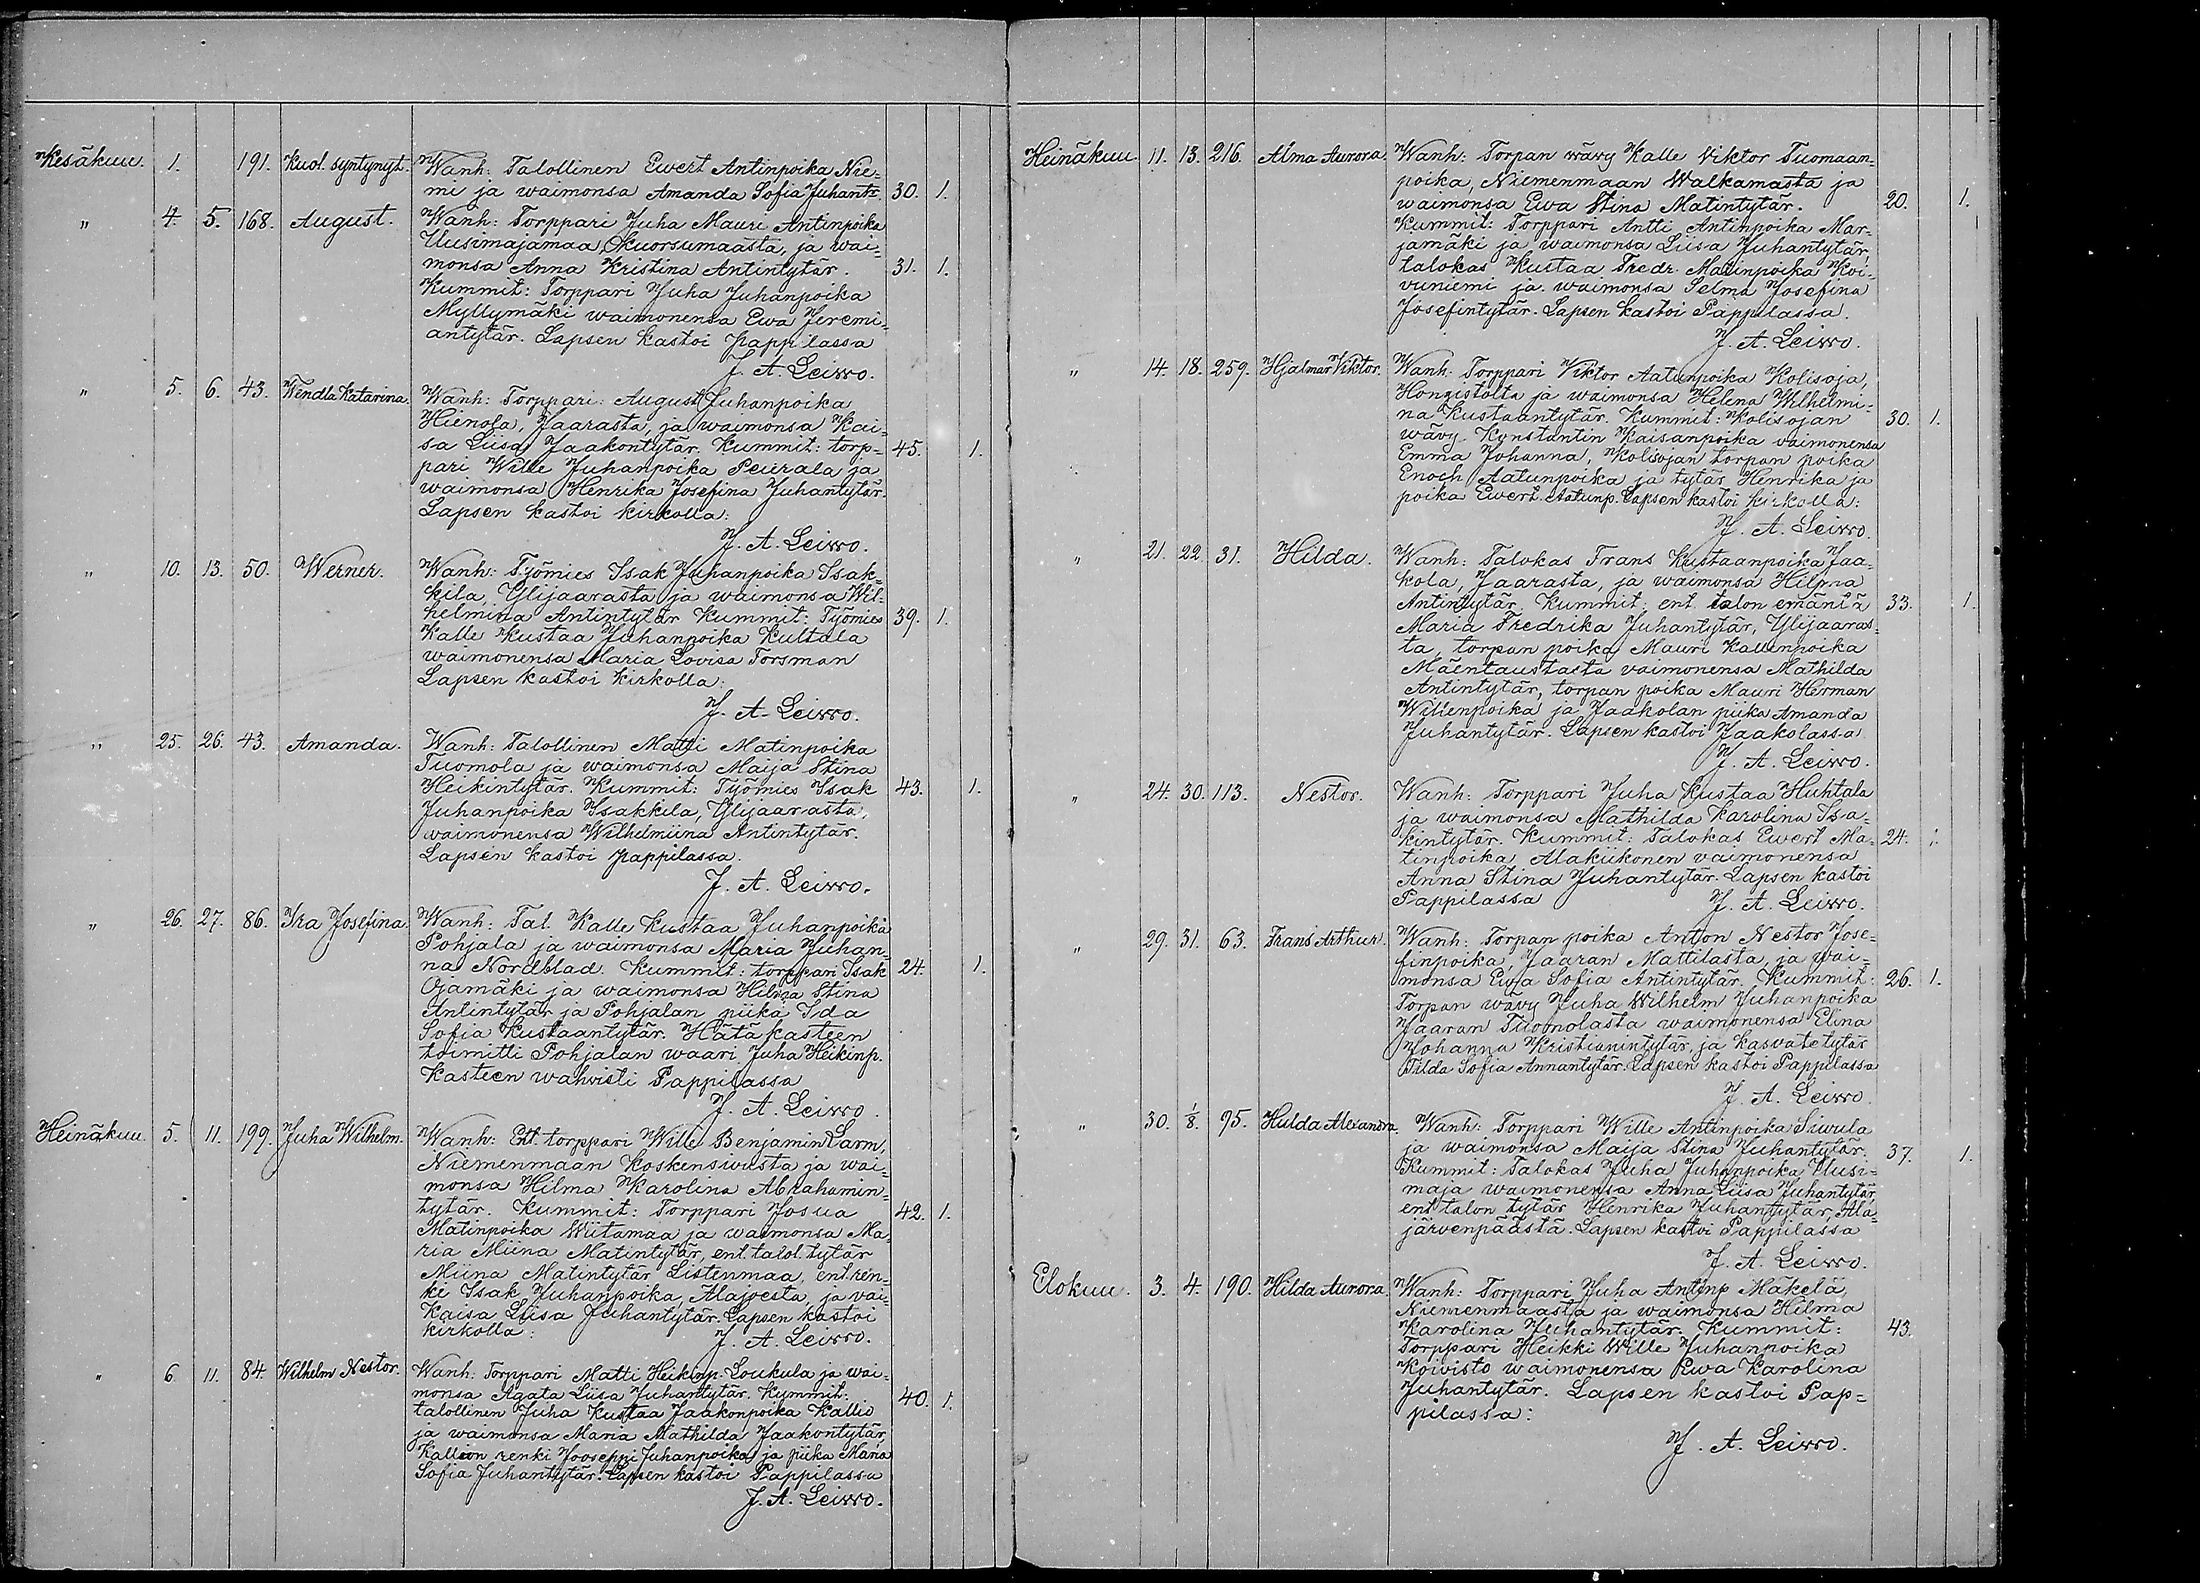 Kesäkuu. 1. 191. Kuol. syntynyt. Wanh: Talollinen Ewert Antinpoika Nie-
mi ja waimonsa Amanda Sofia Juhant: 30. 1.
" 4. 5. 168. August. Wanh: Torppari Juha Mauri Antinpoika
Uusimajamaa, Skuorsumaasta, ja wai-
monsa Anna Kristina Antintytär. 31. 1.
Kummit: Torppari Juha Juhanpoika
Myllymäki waimonensa Ewa Jeremi-
antytär. Lapsen kastoi pappilassa
J. A. Leivo.
" 5. 6. 43. Wendla Katarina. Wanh: Torppari: August Juhanpoika
Hienola, Jaarasta, ja waimonsa Kai-
sa Liisa Jaakontytär. Kummit: torp- 45. 1.
pari Wille Juhanpoika Peurala ja
waimonsa Henrika Josefina Juhantytär.
Lapsen kastoi kirkolla:
J. A. Leivo.
" 10. 13. 50. Werner. Wanh: Työmies Isak Juhanpoika Isak-
kila, Ylijaarasta ja waimonsa Wil-
helmina Antintytär Kummit: Työmies 39. 1.
Kalle Kustaa Juhanpoika Kultala
waimonensa Maria Lovisa Forsman
Lapsen kastoi kirkolla:
J. A. Leivo.
" 25. 26. 43. Amanda. Wanh: Talollinen Matti Matinpoika
Tuomola ja waimonsa Maija Stina
Heikintytär. Kummit: Työmies Isak 43. 1.
Juhanpoika Isakkila, Ylijaarasta,
waimonensa Wilhelmiina Antintytär.
Lapsen kastoi pappilassa.
J. A. Leivo.
" 26. 27. 86. Ira Josefina. Wanh: Tal. Kalle Kustaa Juhanpoika
Pohjala ja waimonsa Maria Juhan-
na Nordblad. Kummit: torppari Isak 24. 1.
Ojamäki ja waimonsa Hilma Stina
Antintytär ja Pohjalan piika Ida
Sofia Kustaantytär. Hätäkasteen
toimitti Pohjalan waari Juha Heikinp.
Kasteen wahvisti Pappilassa
J. A. Leivo.
Heinäkuu. 5. 11. 199. Juha Wilhelm. Wanh: Ent torppari Wille Benjamin Larm,
Niemenmaan Koskensivusta ja wai-
monsa Hilma Karolina Abrahamin-
tytär. Kummit: Torppari Josua 42. 1.
Matinpoika Wiitamaa ja waimonsa Ma-
ria Miina Matintytär, ent. talol. tytär
Miina Matintytär Listenmaa, ent. ren-
ki Isak Juhanpoika, Alajoesta, ja vai-
Kaisa Liisa Juhantytär. Lapsen kastoi
kirkolla: J. A. Leivo.
" 6 11. 84. Wilhelm Nestor. Wanh: Torppari Matti Heikinp. Loukula ja wai-
monsa Agata Liisa Juhantytär. Kummit:
talollinen Juha Kustaa Jaakonpoika Kallio 40. 1.
ja waimonsa Maria Mathilda Jaakontytär,
Kallion renki Jooseppi Juhanpoika ja piika Maria
Sofia Juhantytär. Lapsen kastoi Pappilassa
J. A. Leivo.
Heinäkuu. 11. 13. 216. Alma Aurora. Wanh: Torpan wävy Kalle Viktor Tuomaan-
poika, Niemenmaan Walkamasta ja
waimonsa Ewa Stina Matintytär. 20. 1.
Kummit: Torppari Antti Antinpoika Mar-
jamäki ja waimonsa Liisa Juhantytär,
talokas Kustaa Fredr. Matinpoika Koi-
vuniemi ja waimonsa Selma Josefina
Josefintytär. Lapsen kastoi Pappilassa.
J. A. Leivo.
" 14. 18. 259. Hjalmar Viktor. Wanh: Torppari Viktor Aatunpoika Kolisoja,
Hongistolta ja waimonsa Helena Wilhelmi-
na Kustaantytär. Kummit: Kolisojan 30. 1.
wävy Konstantin Kaisanpoika vaimonensa
Emma Johanna, Kolisojan torpan poika
Enoch Aatunpoika ja tytär Henrika ja
poika Ewert Aatunp. Lapsen kastoi kirkolla:
J. A. Leivo.
" 21. 22. 31. Hilda. Wanh: Talokas Frans Kustaanpoika Jaa-
kola, Jaarasta, ja waimonsa Hilma
Antintytär. Kummit: ent. talon emäntä 33. 1.
Maria Fredrika Juhantytär, Ylijaaras-
ta, torpan poika Mauri Kallenpoika
Mäentaustasta vaimonensa Mathilda
Antintytär, torpan poika Mauri Herman
Willenpoika ja Jaakolan piika Amanda
Juhantytär. Lapsen kastoi Jaakolassa
J. A. Leivo.
" 24. 30. 113. Nestor. Wanh: Torppari Juha Kustaa Huhtala
ja waimonsa Mathilda Karolina Isa-
kintytär. Kummit: Talokas Ewert Ma- 24. 1.
tinpoika Alakiikonen vaimonensa
Anna Stina Juhantytär. Lapsen kastoi
Pappilassa J. A. Leivo.
" 29. 31. 63. Frans Arthur. Wanh: Torpan poika Anton Nestor Jose-
finpoika, Jaaran Mattilasta, ja wai-
monsa Ewa Sofia Antintytär. Kummit: 26. 1.
Torpan wävy Juha Wilhelm Juhanpoika
Jaaran Tuomolasta waimonensa Elina
Johanna Kristianintytär ja kasvatetytär
Tilda Sofia Annantytär. Lapsen kastoi Pappilassa
J. A. Leivo.
" 30. 1/8. 95. Hulda Alexandra. Wanh: Torppari Wille Antinpoika Siwula
ja waimonsa Maija Stina Juhantytär. 37. 1.
Kummit: Talokas Juha Juhanpoika Uusi-
maja waimonensa Anna Liisa Juhantytär,
ent talon tytär Henrika Juhantytär, Ala-
järvenpäästä. Lapsen kastoi Pappilassa
J. A. Leivo.
Elokuu. 3. 4. 190. Hilda Aurora. Wanh: Torppari Juha Antinp Mäkelä,
Niemenmaasta ja waimonsa Hilma
Karolina Juhantytär. Kummit: 43.
Torppari Heikki Wille Juhanpoika
Koivisto waimonensa Ewa Karolina
Juhantytär. Lapsen kastoi Pap-
pilassa:
J. A. Leivo.